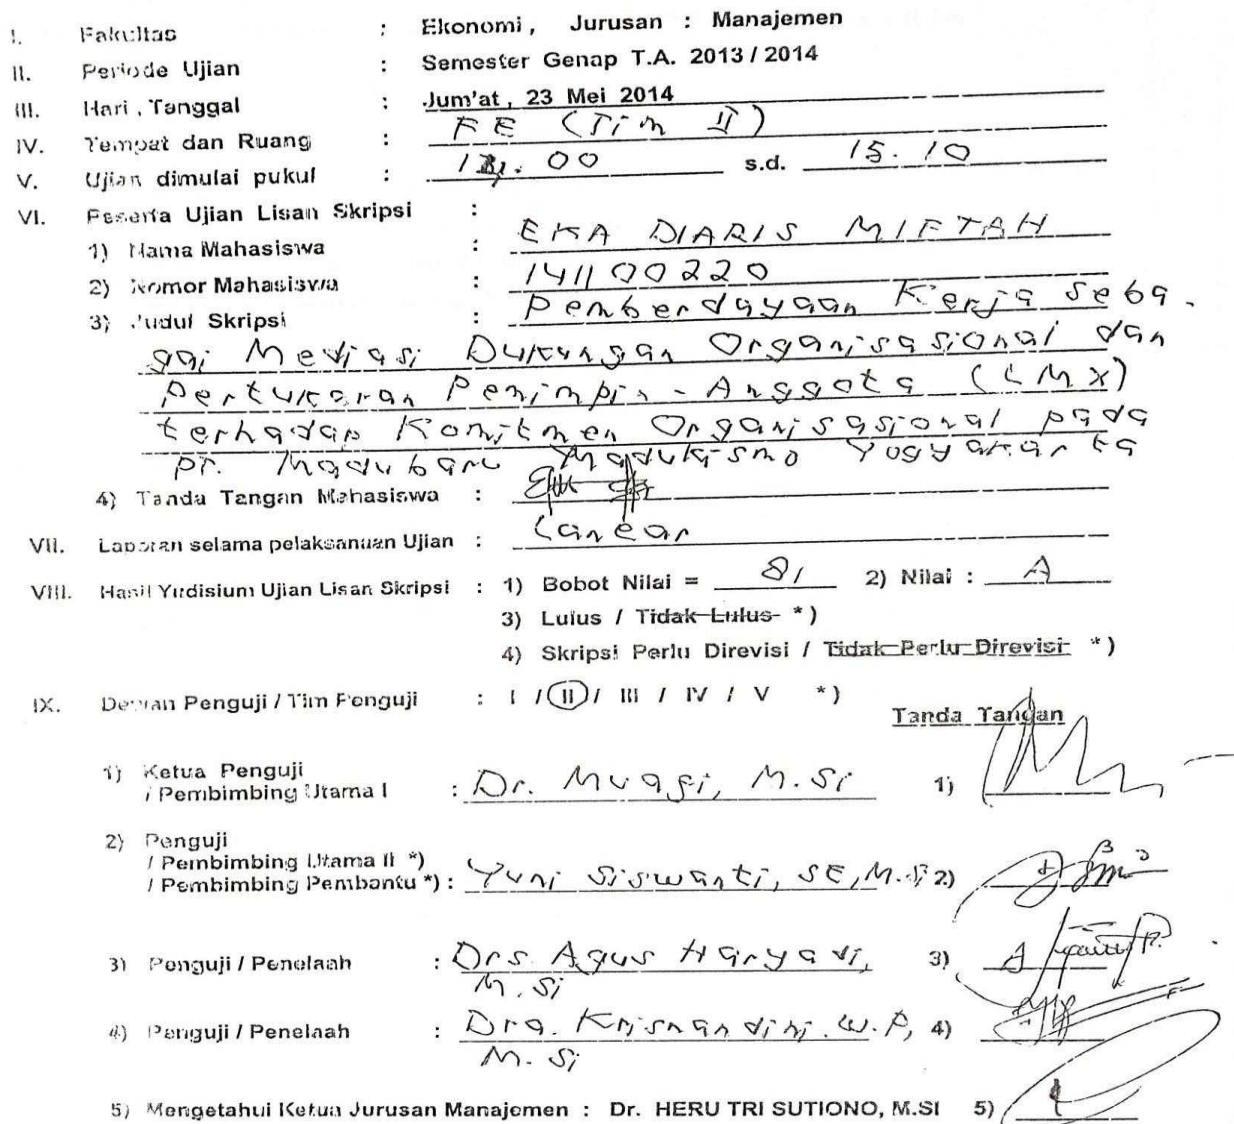 I. Fakultas : Ekonomi, Jurusan : Manajemen
II. Periode Ujian : Semester Genap T.A. 2013 / 2014
III. Hari, Tanggal : Jum'at, 23 Mei 2014
IV. Tempat dan Ruang : FE (Tim II)
V. Ujian dimulai pukul : .00 s.d. 15.10
VI. Peserta Ujian Lisan Skripsi :
1) Nama Mahasiswa : EKA DIARIS MIFTAH
2) Nomor Mahasiswa : 141100220
3) Judul Skripsi : Pemberdayaan Kerja Seba-
gai Mediasi Dukungan Organisasional dan
Pertukaran Pemimpin - Anggota (LMX)
terhadap Komitmen Organisasional pada
PT. Madubaru Madukismo Yogyakarta
4) Tanda Tangan Mahasiswa :
VII. Laporan selama pelaksanaan Ujian : Lancar
VIII. Hasil Yudisium Ujian Lisan Skripsi : 1) Bobot Nilai = 81 2) Nilai : A
3) Lulus / Tidak Lulus *)
4) Skripsi Perlu Direvisi / Tidak Perlu Direvisi *)
IX. Dewan Penguji / Tim Penguji : I / II / III / IV / V *)
Tanda Tangan
1) Ketua Penguji
/ Pembimbing Utama I : Dr. Muafi, M.Si 1)
2) Penguji
/ Pembimbing Utama II *)
/ Pembimbing Pembantu *) : Yuni Siswanti, SE, M.Si 2)
3) Penguji / Penelaah : Drs. Agus Haryadi, 3)
M.Si
4) Penguji / Penelaah : Dra. Krisnandini. W.P, 4)
M.Si
5) Mengetahui Ketua Jurusan Manajemen : Dr. HERU TRI SUTIONO, M.SI 5)